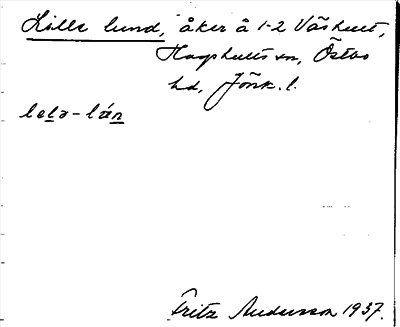 Lille lund, åker å 1-2 Våshult,
Hagshults sn, Östbo
hd, Jönk. l.
lelə - lán
Fritz Andersson 1937.